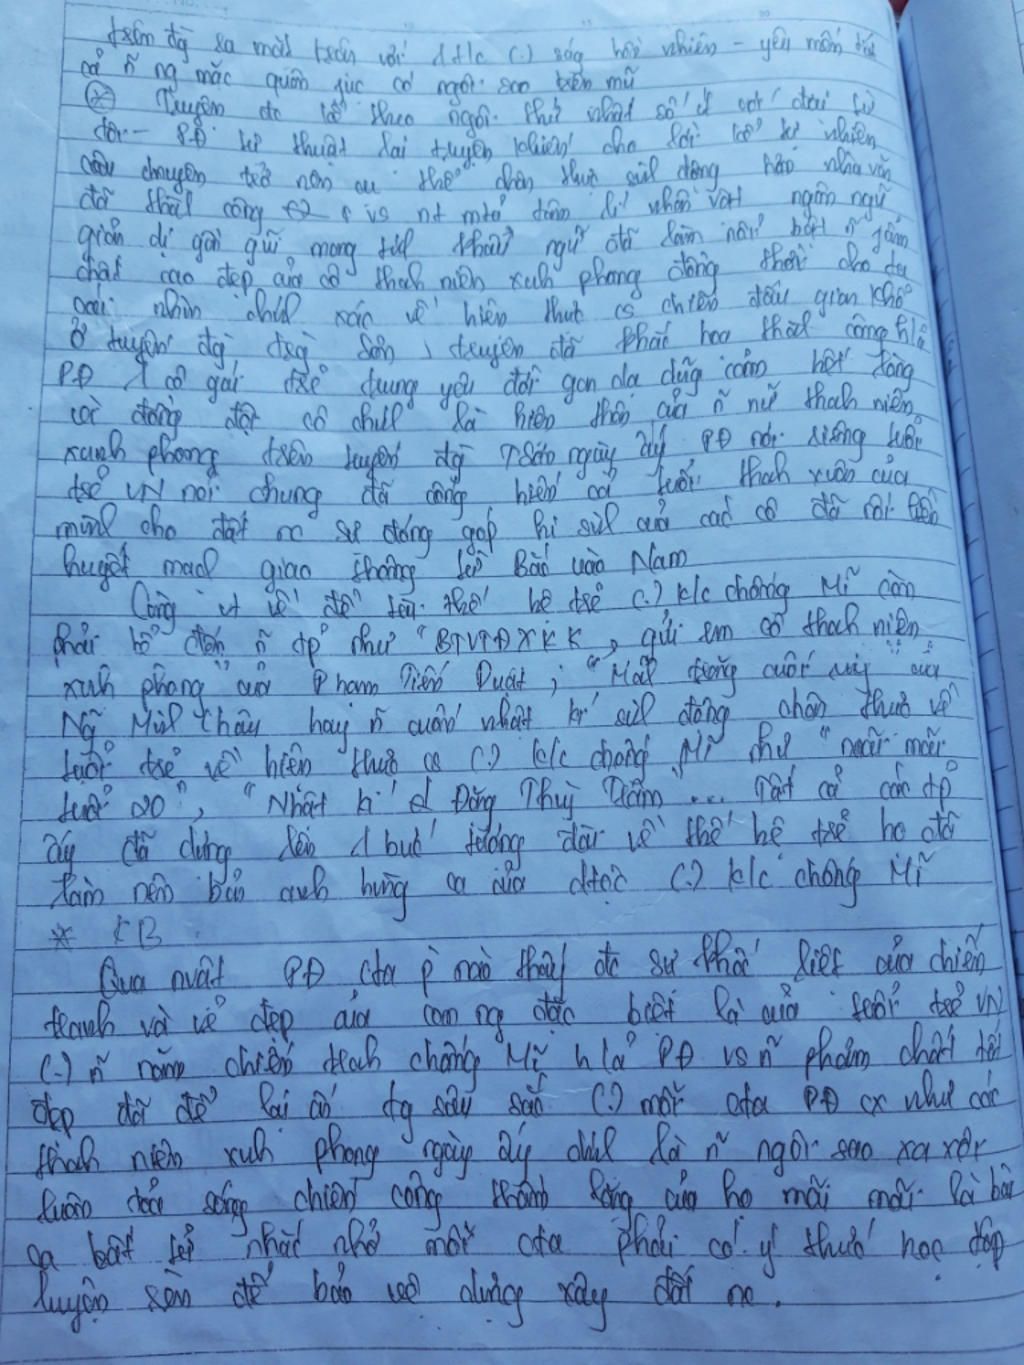 trên đg ra mặt trận với 1 t/c (.) sáng hồn nhiên - yêu mến tất
cả ~n ng mặc quân phục có ngôi sao trên mũ
(*) Truyện đc kể theo ngôi thứ nhất số ít với đại từ
tôi - PĐ tự thuật lại truyện khiến cho lời kể tự nhiên
câu chuyện trở nên cụ thể chân thực sinh động nào nhà văn
đã thành công vs nt mtả tâm lí nhân vật ngôn ngữ
giản dị gần gũi mang tính khẩu ngữ đã làm nổi bật ~n phẩm
chất cao đẹp của cô thanh niên xung phong đồng thời cho ta
cái nhìn chính xác về hiện thực cs chiến đấu gian khổ
ở tuyến đg Trg Sơn, truyện đã phác hoạ thành công h/ả
PĐ 1 cô gái trẻ trung yêu đời gan dạ dũng cảm hết lòng
với đồng đội cô chính là hiện thân của ~n nữ thanh niên
xung phong trên tuyến đg Tsơn ngày ấy PĐ nói riêng tuổi
trẻ VN nói chung đã cống hiến cả tuổi thanh xuân của
mình cho đất nc sự đóng góp hi sinh của các cô đã nối liền
huyết mạch giao thông từ Bắc vào Nam
Cùng vt về đề tài thế hệ trẻ (.) k/c chống Mĩ cần
phải kể đến ~n tp như "BTVTĐXKK, gửi em cô thanh niên
xung phong" của Phạm Tiến Duật; "Mảnh trăng cuối rừng" của
Ng Minh Châu hay ~n cuốn nhật kí sinh động chân thực về
tuổi trẻ về hiện thực cs (.) k/c chống Mĩ như "mãi mãi
tuổi 20", "Nhật kí Đặng Thùy Trâm"... Tất cả các tp
ấy đã dựng lên 1 bức tượng đài về thế hệ trẻ họ đã
làm nên bản anh hùng ca của dtộc (.) k/c chống Mĩ
* KB
Qua nvật PĐ cta p nào thấy đc sự khốc liệt của chiến
tranh và vẻ đẹp của con ng đặc biệt là của tuổi trẻ VN
(.) ~n năm chiến tranh chống Mĩ h/ả PĐ vs ~n phẩm chất tốt
đẹp đã để lại ấn tg sâu sắc (.) mỗi cta PĐ cx như các
thanh niên xung phong ngày ấy chính là ~n ngôi sao xa xôi
luôn toả sáng chiến công thầm lặng của họ mãi mãi là bài
ca bất tử nhắc nhở mỗi cta phải có ý thức học tập
luyện rèn để bảo vệ dựng xây đất nc.